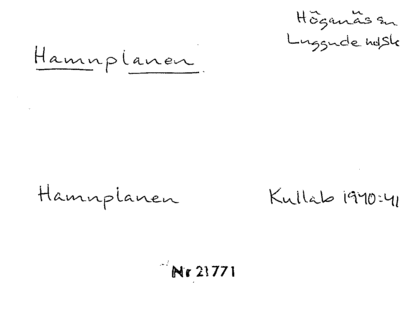 Höganäs sn
Luggude hd, Sk
Hamnplanen
Hamnplanen Kullab 1940:41
Nr 21771